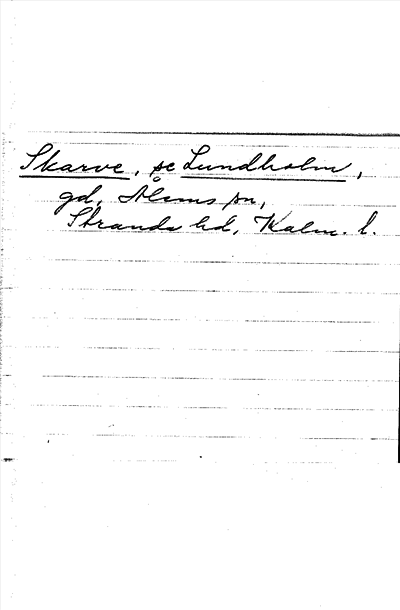 Skarve, se Lundholm,
gd, Ålems sn,
Stranda hd, Kalm. l.